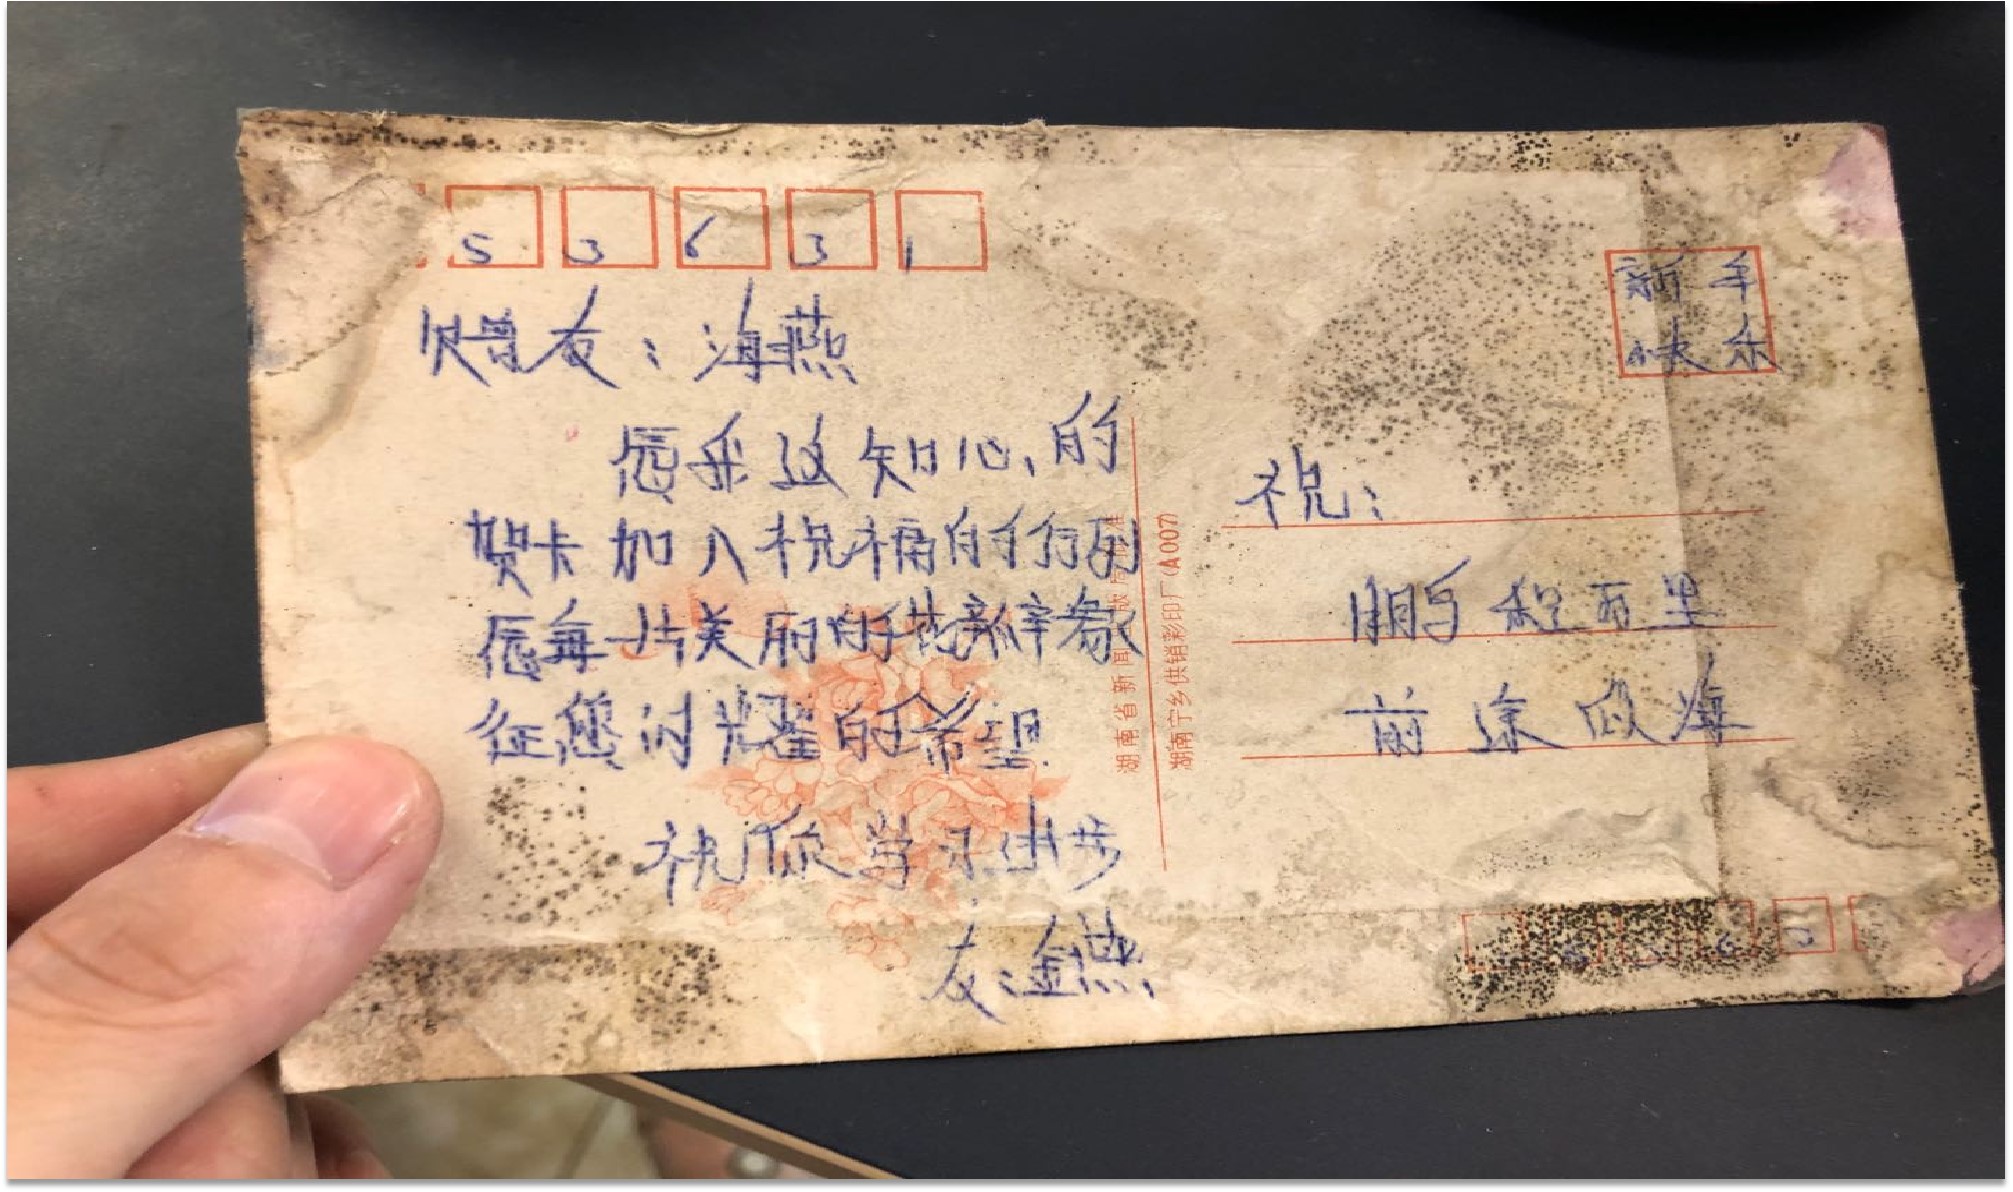 5 3 6 3 1
新年
快乐
赠友：海燕
愿乘这知心的
贺卡加入祝福的行列
愿每一片美丽的花瓣象
征您闪耀的希望
祝你学习进步
友：金燕
祝：
鹏程万里
前途似海
湖南省新闻出版局批准
湖南宁乡供销彩印厂(A007)